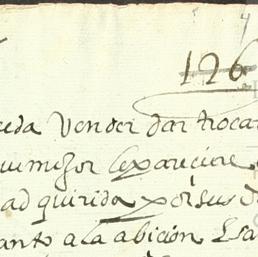 126
ueda Vender dar trocar
quemejor le pareciere
adquirida por sus
anto a la abicion